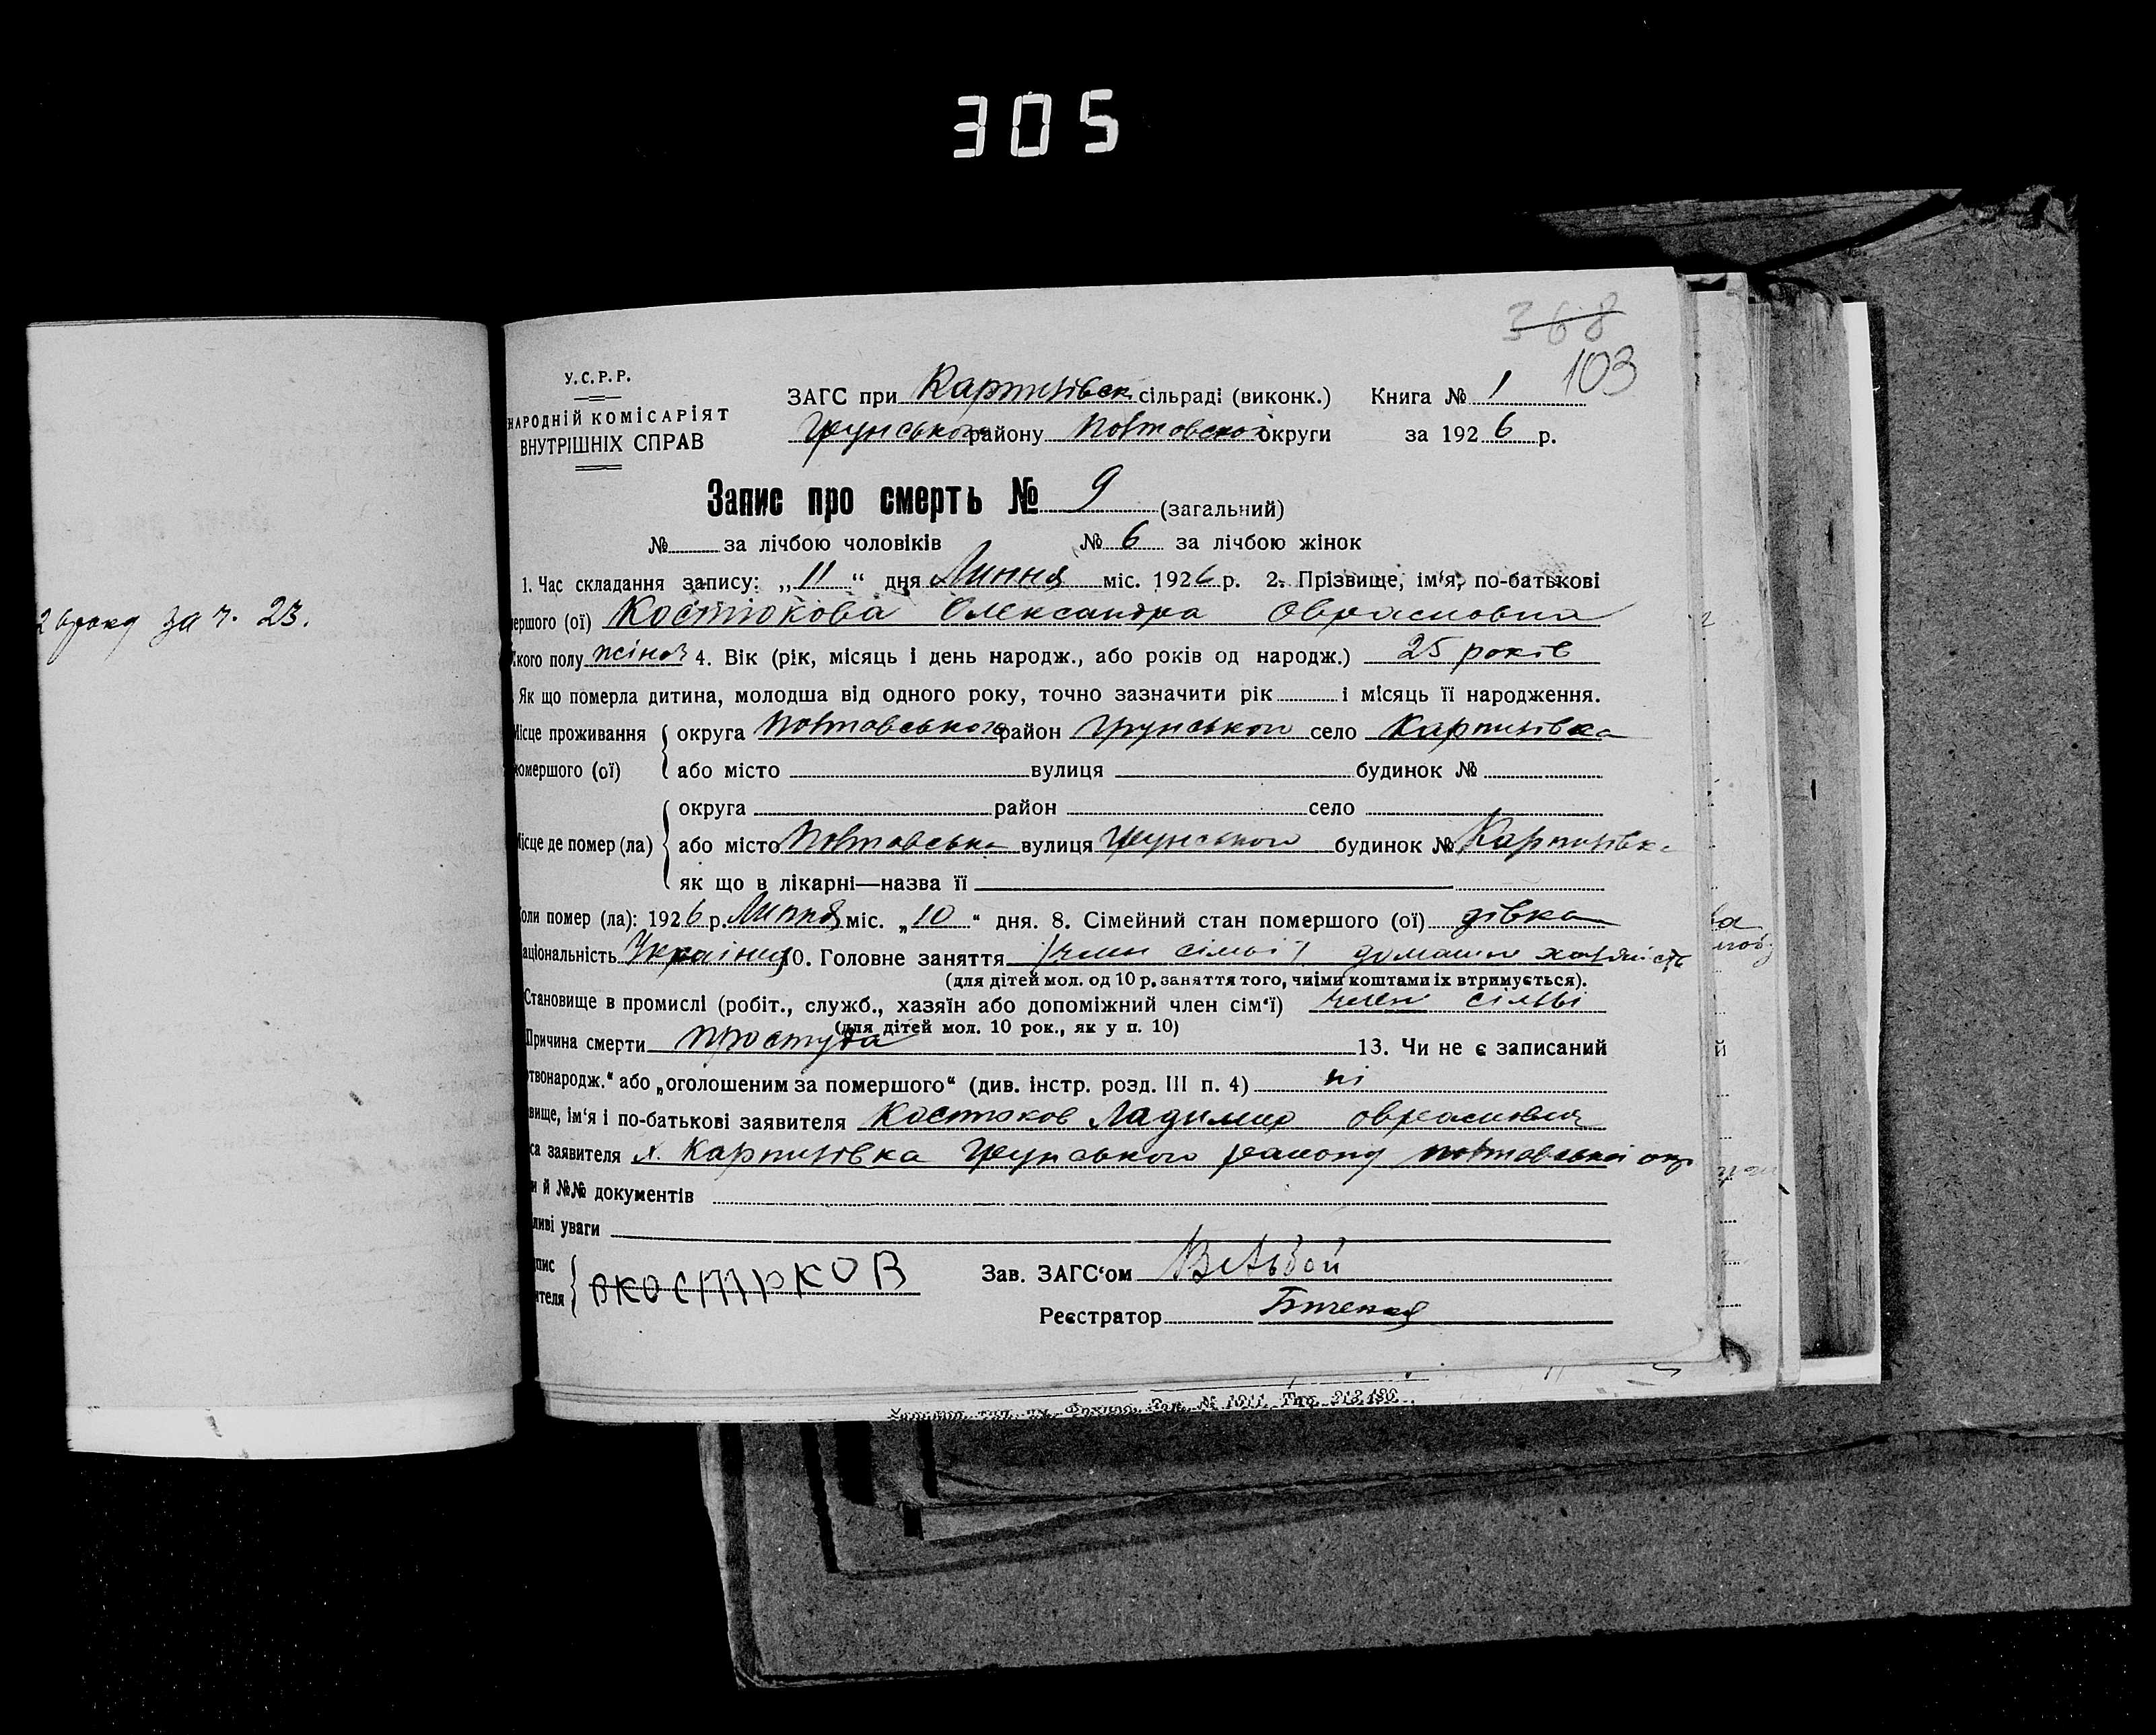 305
368
103
У.С.Р.Р.
НАРОДНІЙ КОМІСАРІЯТ
ВНУТРІШНІХ СПРАВ
ЗАГС при Карпилівск сільраді (виконк.) Книга № 1
Грунського району Полтовської округи за 1926 р.
Запис про смерть № 9 (загальний)
№ за лічбою чоловіків № 6 за лічбою жінок
1. Час складання запису: „11“ дня Липня міс. 1926 р. 2. Прізвище, ім'я, по-батькові
мершого (ої) Костюкова Олександра
2 за ч. 23.
кого полу жіноч 4. Вік (рік, місяць і день народж., або років од народж.) 25 років
Як що померла дитина, молодша від одного року, точно зазначити рік і місяць її народження.
Місце проживання округа Полтовського район Грунського село Карпилівка
помершого (ої) або місто вулиця будинок №
округа район село
Місце де помер (ла) або місто Полтовська вулиця Грунського будинок № Карпилівка
як що в лікарні—назва її
коли помер (ла): 1926 р. Липня міс. „10“ дня. 8. Сімейний стан помершого (ої) дівка
аціональність Україн 10. Головне заняття член сімьї домашнє
(для дітей мол. од 10 р. заняття того, чиїми коштами їх втримується).
Становище в промислі (робіт., служб., хазяїн або допоміжний член сім'ї) член сімьї
(для дітей мол. 10 рок., як у п. 10)
Причина смерти простуда 13. Чи не є записаний
твонародж.“ або „оголошеним за помершого“ (див. інстр. розд. III п. 4) ні
вище, ім'я і по-батькові заявителя Костюков Ладимир
са заявителя х. Карпилівка Грунського району Полтовської окр
и й №№ документів
ливі уваги
пис
ителя Зав. ЗАГС'ом
Реєстратор